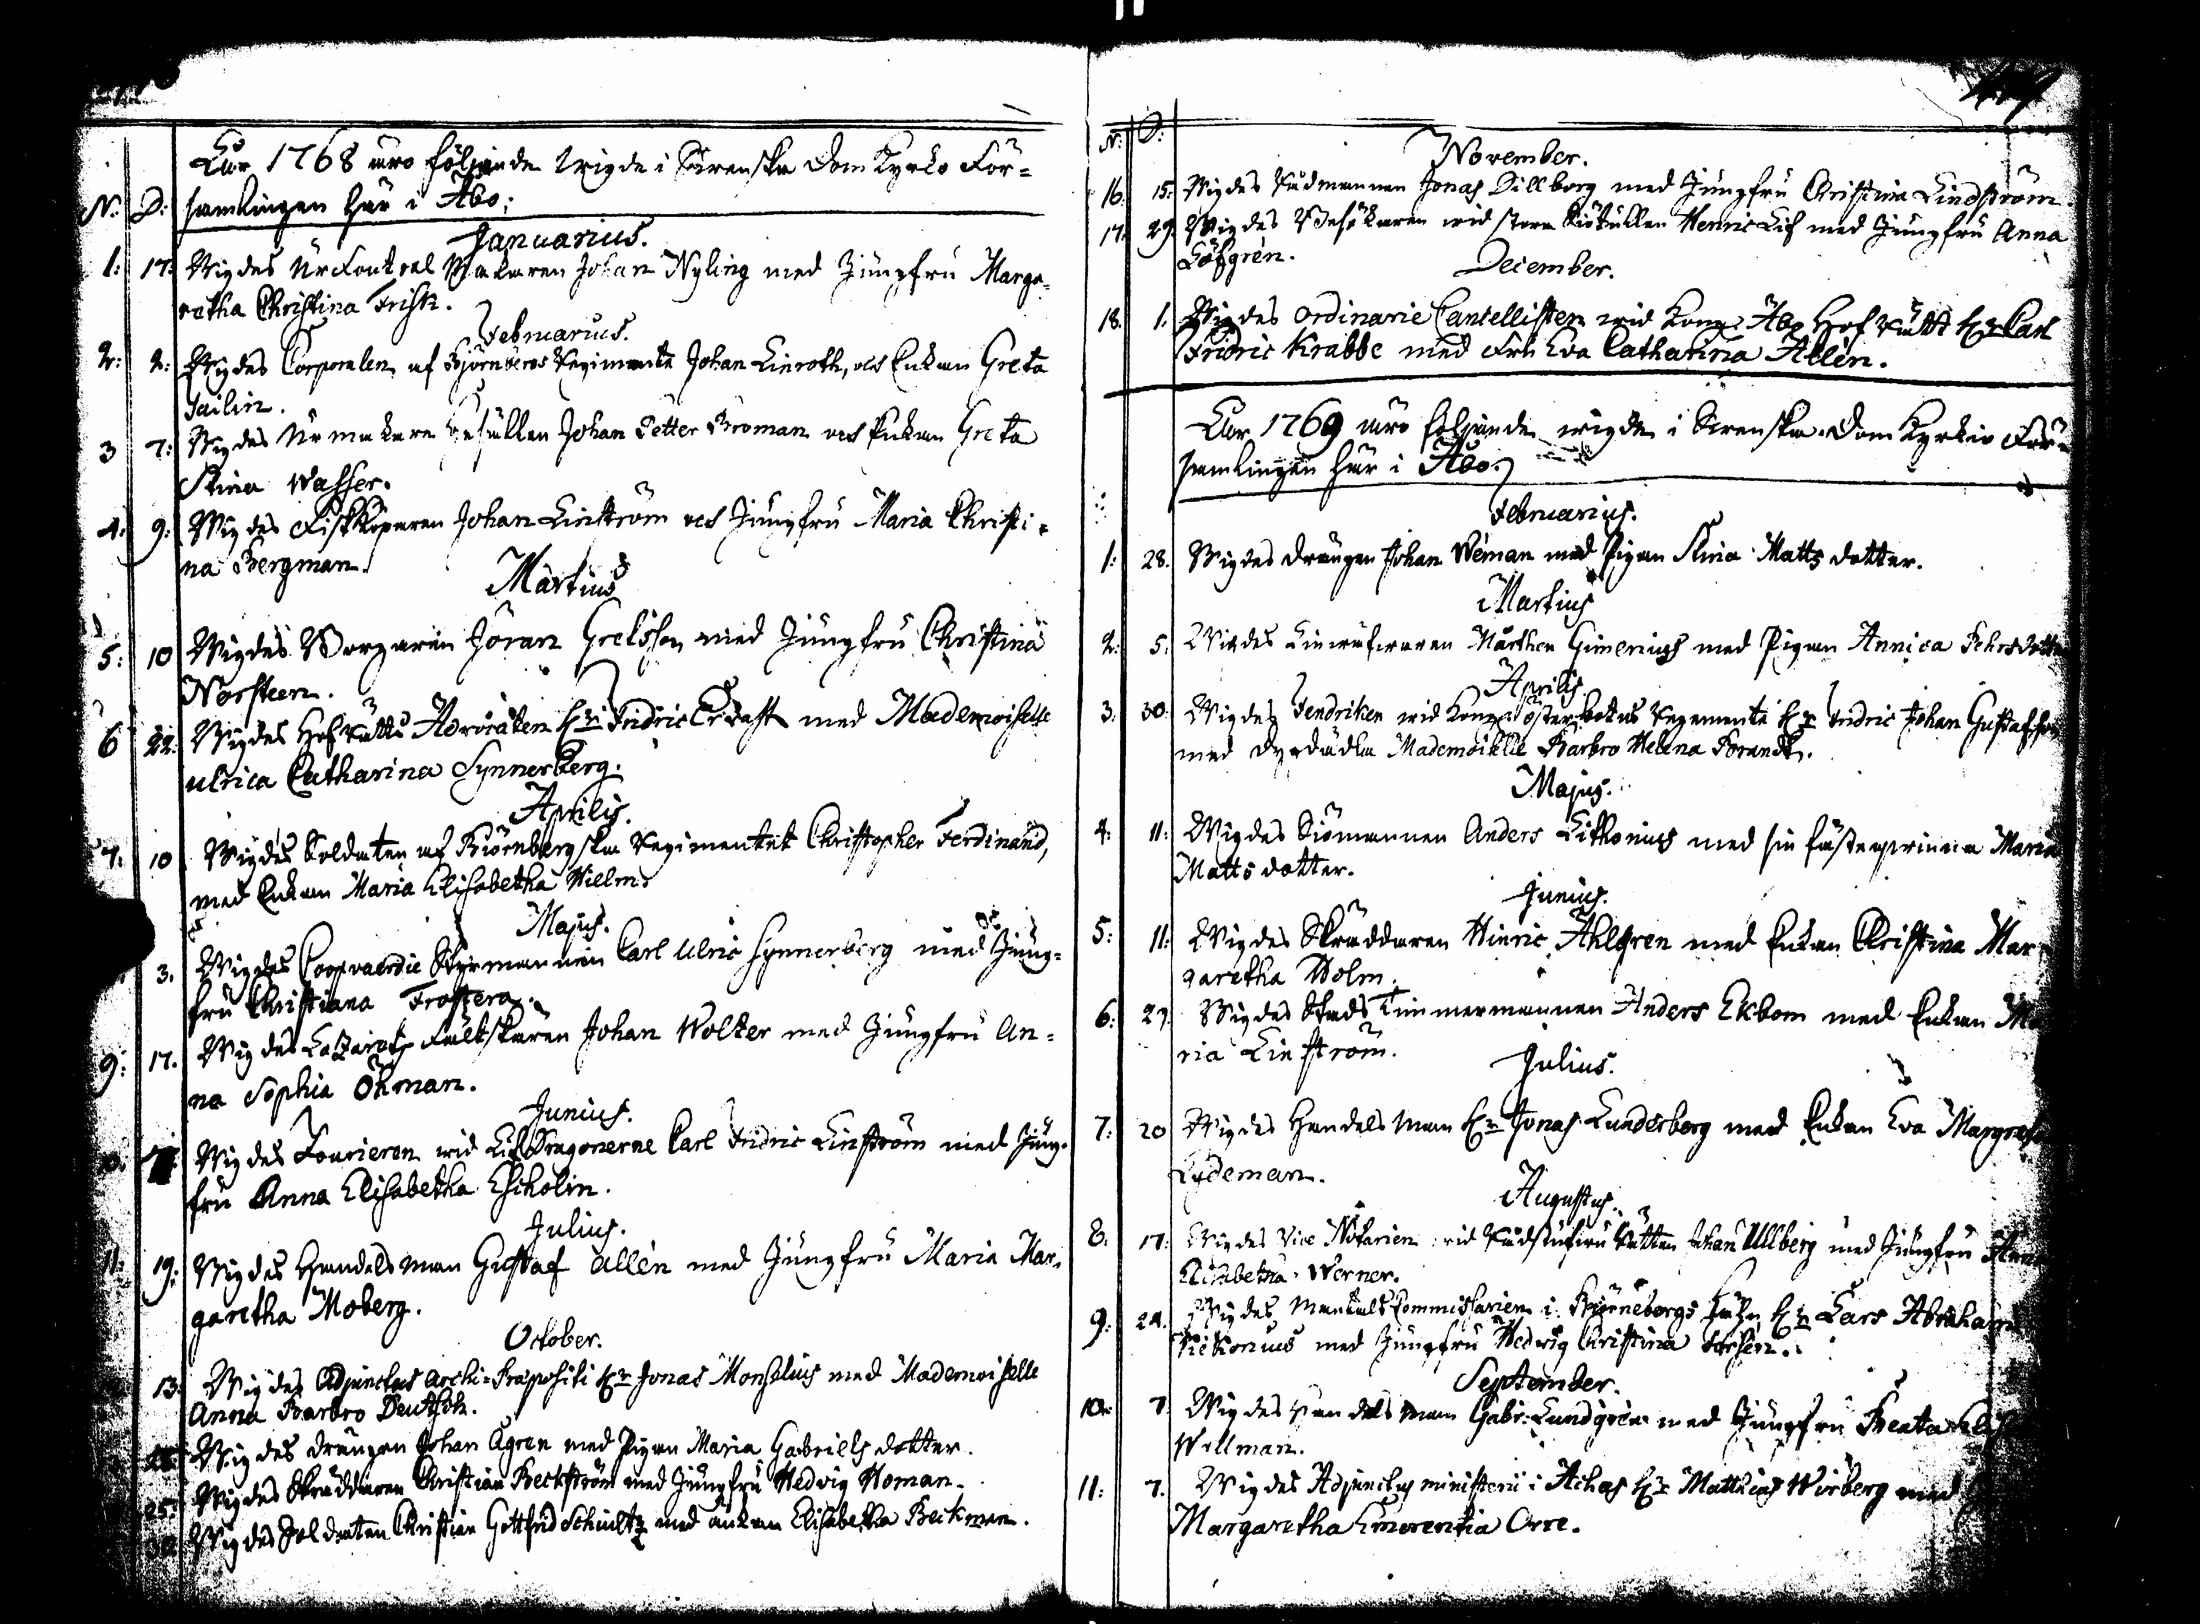 Åhr 1768 äro följande wigde i Swenska Dom Kyrko För=
N: D: samlingen här i Åbo:
Januarius.
1: 17: Wigdes Ur Foutral Makaren Johan Nyling med Jungfru Marga=
retha Christina Frisk.
Februarius.
2: 2: Wigdes Corporalen af Björnebors Regimente Johan Linroth, och Enkan Greta
Sailin.
3 7: Wigdes Urmakare Gesällen Johan Petter Broman och Enkan Greta
Stina Wasser.
4: 9: Wigdes Fiskköparen Johan Linström och Jungfru Maria Christi=
na Bergman.
Martius
5: 10 Wigdes Borgaren Jöran Grelsson med Jungfru Christina
Norsteen.
6 22: Wigdes Hof Rätts Advocaten Hr: Fridric med Mademoiselle
Ulrica Catharina Synnerberg.
Aprilis.
7: 10 Wigdes Soldaten af Björnbergska Regimentet Christopher Ferdinand,
med Enkan Maria Elisabetha Willm:
Majus.
3. Wigdes Coopvaerdie Styrmannen Carl Ulric Synnerberg med Jung=
fru Christiana Frostera.
9: 17. Wigdes Lazarets Fältskären Johan Wolter med Jungfru An=
na Sophia Öhman.
Junius.
Wigdes Fourieren wid Lif Dragonerne Carl Fridric Linström med Jung=
fru Anna Elisabetha Escholin.
Julius.
11: 19: Wigdes Handelsman Gustaf Allén med Jungfru Maria Mar=
garetha Moberg.
October.
13: Wigdes Adjunctus Archi=Præpositi Hr Jonas Monselius med Mademoiselle
Anna Barbro Deutsch.
Wigdes Drängen Johan Ågren med Pigan Maria Gabriels dotter.
25: Wigdes Skräddaren Christian Beckström med Jungfru Hedvig Homan.
30 Wigdes Soldaten Christian Gottfrid Schultz med änkan Elisabetha Beckman.
N: D:
November.
16. 15: Wigdes Rådmannen Jonas Dillborg med Jungfru Christina Lindström
17. 29. Wigdes Besökaren wid stora Siötullen Henric Lif med Jungfru Anna
Löfgrén.
December.
18. 1. Wigdes Ordinarie Cancellisten wid Kongl. Åbo Hof Rätt Hr Carl
Fridric Krabbe med Frk Eva Catharina Allén.
Åhr 1769 äro följande wigde i Swenska Dom Kyrkio För=
samlingen här i Åbo.
Februarius.
1: 28. Wigdes Drängen Johan Wéman med Pigan Stina Matts dotter.
Martius
2: 5. Wigdes Linwäfwaren Mårthen Gimenius med Pigan Annica Pehrsdotter
Aprilis.
3: 30. Wigdes Fendriken wid Kongl. Österbotns Regemente Hr Fridric Johan Gustafsson
med Dygdädla Mademoiselle Barbro Helena Brandt.
Majus.
4: 11: Wigdes Siömannen Anders Lithonius med sin fästeqwinna Maria
Matts dotter.
Junius.
5: 11: Wigdes Skräddaren Hinric Ahlgren med Enkan Christina Mar=
garetha Holm.
6: 29. Wigdes Stads Timmermannen Anders Ekbom med Enkan Ma
ria Linström.
Julius.
7: 20 Wigdes Handelsman Hr Jonas Lundsberg med Enkan Eva Margret
Lydeman.
Augustus.
8: 17: Wigdes Vice Notarien wid Rådstufwu Rätten Johan Ullberg med Jungfru Anna
Elisabetha Werner.
9: 24. Wigdes Mantals Commissarien i Björneborgs Lähn Hr Lars Abraham
med Jungfru Hedwig Christina
September.
10: 7. Wigdes Handelsman Gabr: Lundgrén med Jungfru Beata Elis
Willman.
11: 7. Wigdes Adjunctus ministerii i Achas Hr Matthias Wirberg med
Margaretha Emerentia Orre.